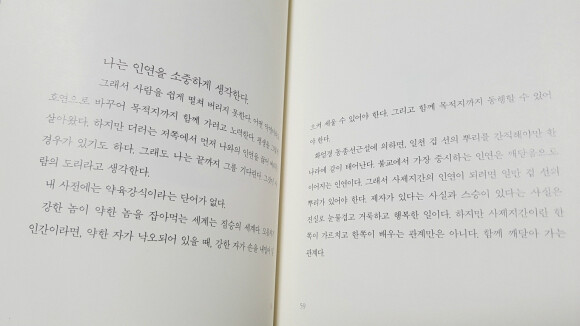 나는 인연을 소중하게 생각한다.
그래서 사람을 쉽게 떨쳐 버리지 못한다.
호연으로 바꾸어 목적지까지 함께 가려고 노력한다.
살아왔다. 하지만 더러는 저쪽에서 먼저 나와의 인연을
경우가 있기도 하다. 그래도 나는 끝까지 그를 기다린다.
람의 도리라고 생각한다.
내 사전에는 약육강식이라는 단어가 없다.
강한 놈이 약한 놈을 잡아먹는 세계는 짐승의 세계다.
인간이라면, 약한 자가 낙오되어 있을 때, 강한 자가 손을 내밀어
으켜 세울 수 있어야 한다. 그리고 함께 목적지까지 동행할 수 있어
야 한다.
화엄경 동종선근설에 의하면, 일천 겁 선의 뿌리를 간직해야만 한
나라에 같이 태어난다. 불교에서 가장 중시하는 인연은 깨달음으로
이어지는 인연이다. 그래서 사제지간의 인연이 되려면 일만 겁 선의
뿌리가 있어야 한다. 제자가 있다는 사실과 스승이 있다는 사실은
진실로 눈물겹고 거룩하고 행복한 일이다. 하지만 사제지간이란 한
쪽이 가르치고 한쪽이 배우는 관계만은 아니다. 함께 깨달아 가는
관계다.
59